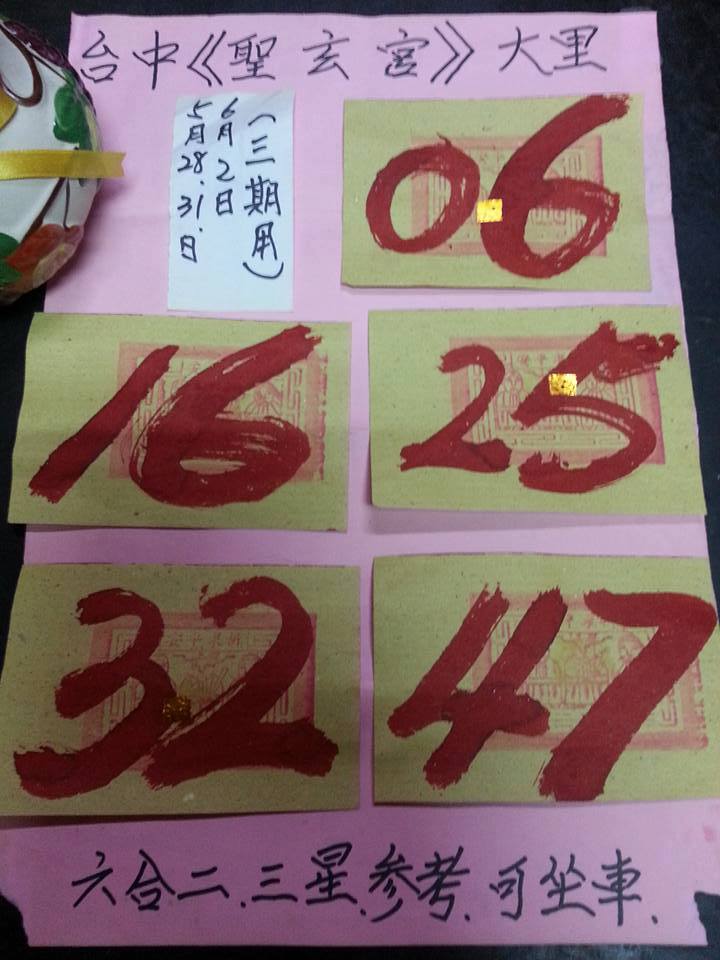 台中《聖玄宮》大里
(三期用)
6月2日
5月28.31.日
06
16
25
32
47
六合二.三星.參考.可坐車.